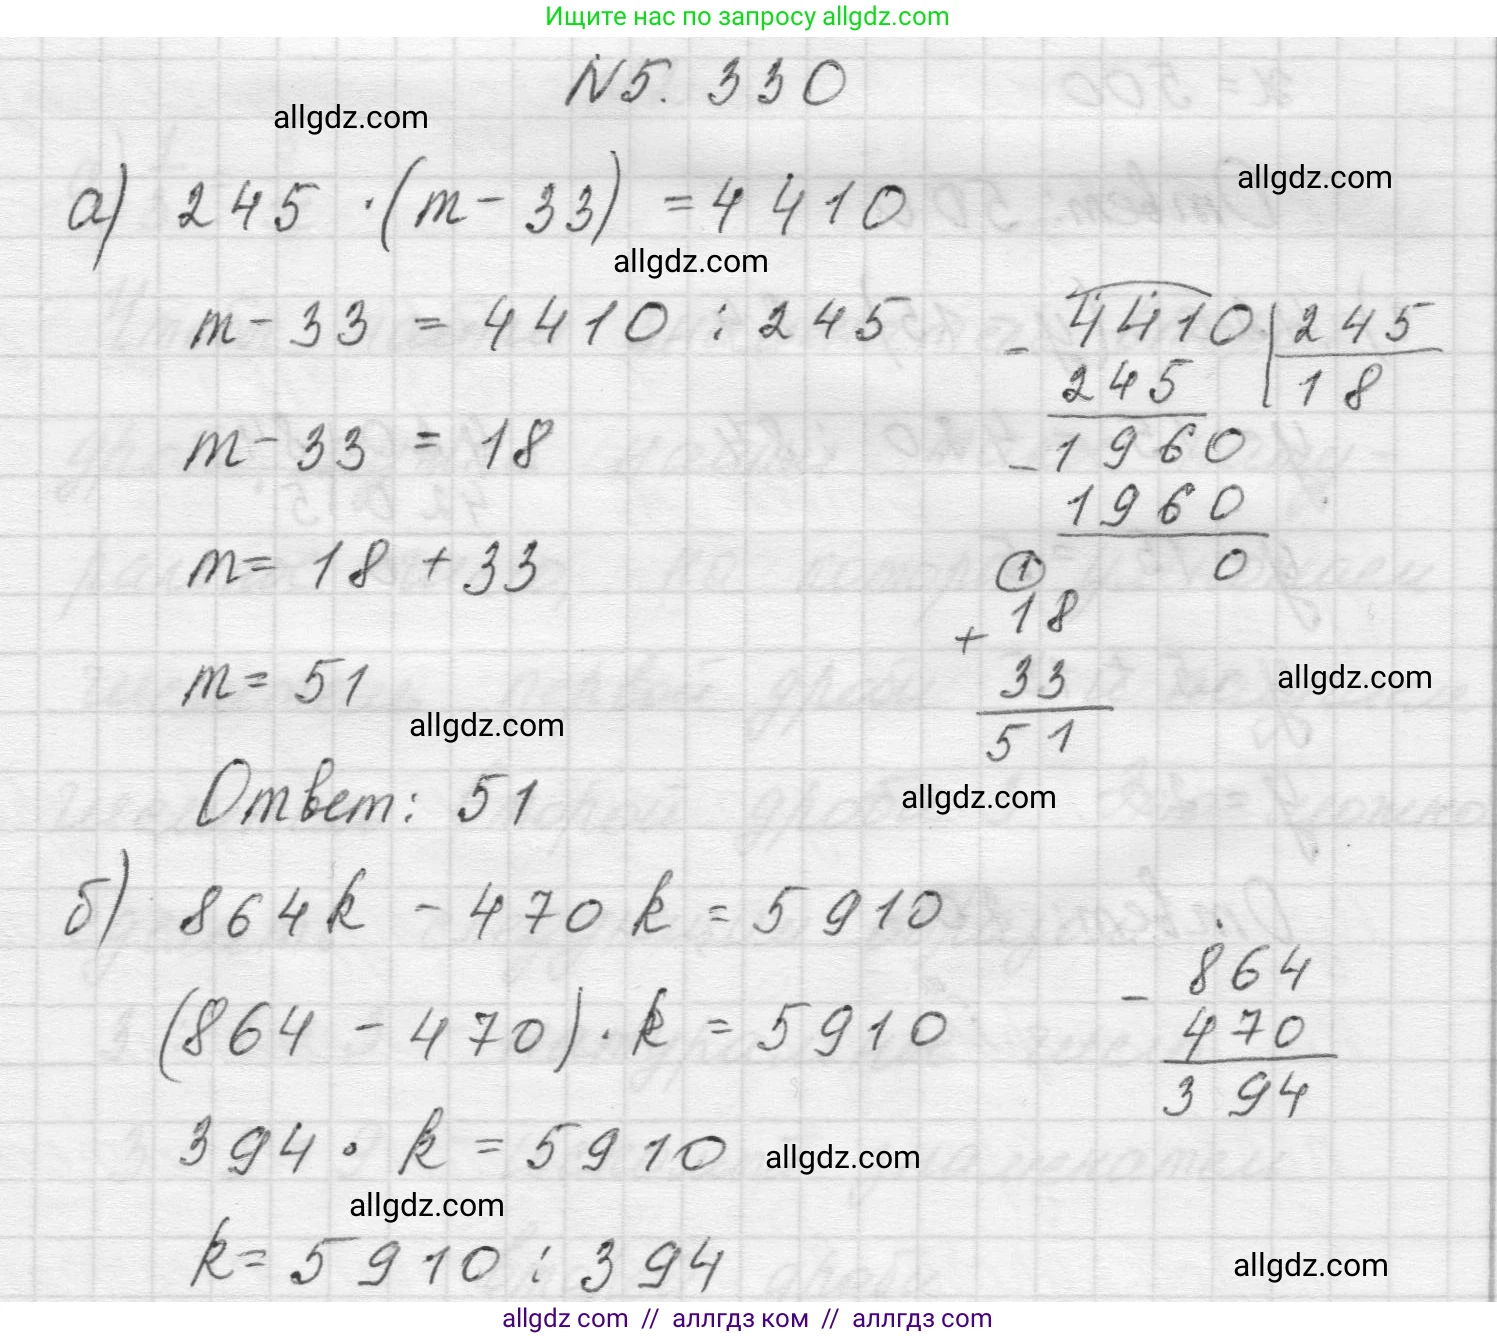 Ищите нас по запросу allgdz.com
N5. 330
allgdz.com
allgdz.com
а) 245 · (m - 33) = 4410
allgdz.com
m - 33 = 4410 : 245
m - 33 = 18
m = 18 + 33
m = 51
allgdz.com
Ответ: 51
- 4410 | 245
245 | 18
- 1960
1960
0
1
+ 18
33
51
allgdz.com
allgdz.com
б) 864k - 470k = 5910
(864 - 470) · k = 5910
394 · k = 5910
allgdz.com
allgdz.com
k = 5910 : 394
- 864
470
394
allgdz.com
allgdz.com // аллгдз ком // аллгдз.com